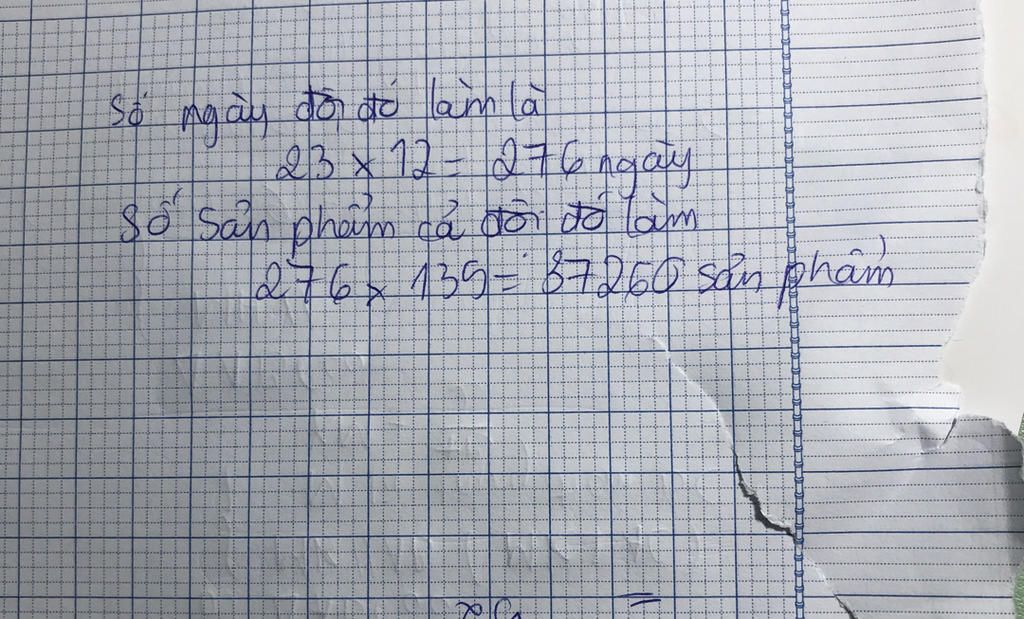 Số ngày đội đó làm là
23 x 12 = 276 ngày
Số sản phẩm cả đội đó làm
276 x 135 = 37260 sản phẩm